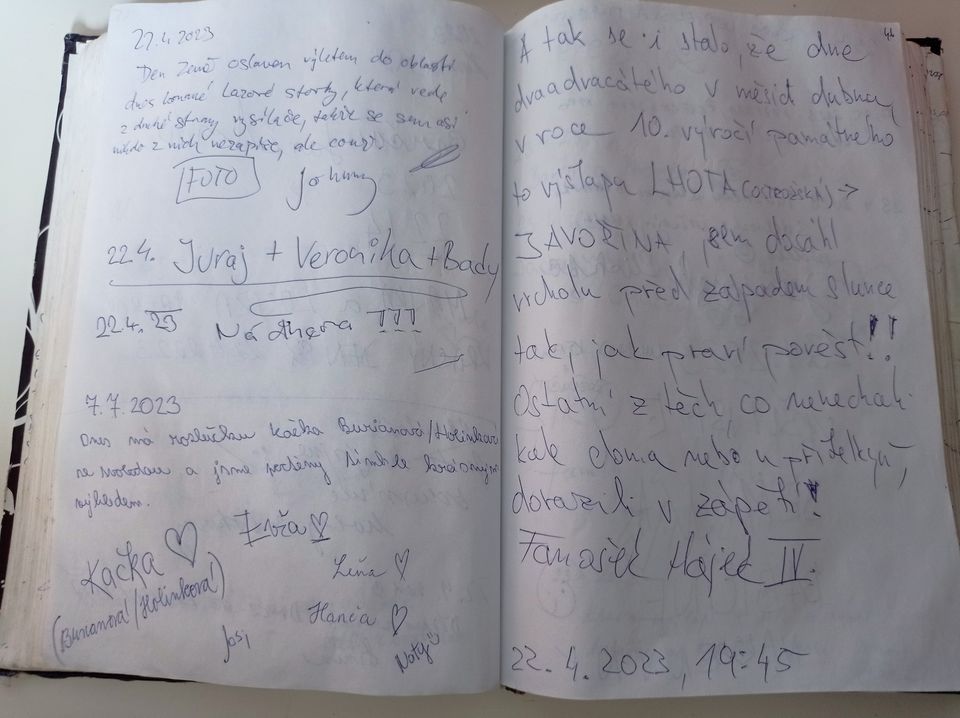 22.4.2023
Den Země oslaven výletem do oblasti
dnes konané Lazové stovky, která vede
z druhé strany vysílače, takže se sem asi
nikdo z nich nezapíše, ale
FOTO
Johnny
22.4. Juraj + Veronika + Bady
22.4.23 Nádhera !!!
7.7.2023
Dnes má rozlučku Kačka Burianová/Holinková
se svobodou a jsme krásným
výhledem.
Kačka
(Burianová/Holinková)
Evža
Léňa
Hanča
Josi
Naty
41
A tak se i stalo, že dne
dvaadvacátého v měsíci dubna,
v roce 10. výročí památného
to výšlapu LHOTA (OSTROŽSKÁ) →
JAVOŘINA, jsem dosáhl
vrcholu před západem slunce
tak, jak praví pověst!!
Ostatní z těch, co nenechali
kole doma nebo u přítelkyň,
dorazili v zápětí!
Hájek IV.
22.4.2023, 19:45